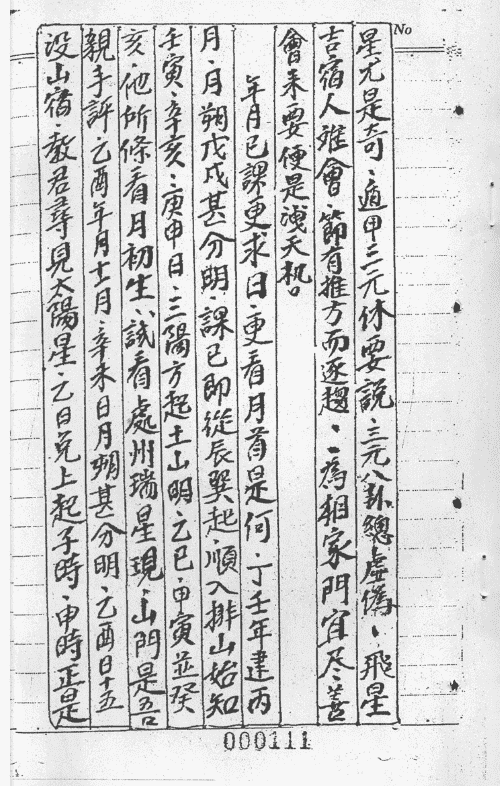 No
星尤是奇、遁甲三元休要說、三元八卦總虛偽、飛星
吉宿人难會、節有推方而逐趨、一為相家門宜尽善
會来要便是洩天机。
年月已課更求日、更看月首是何、丁壬年建丙
月、月朔戊戌甚分明、課已即從辰巽起、順入排山始知
壬寅、辛亥、庚申日、三陽方起土山明、乙巳、甲寅並癸
亥、他所條看月初生、試看處州瑞星現、山門是吾
親手評、乙酉年月十一月、辛未日月朔甚分明、乙酉日十五
没山宿、教君尋見太陽星、乙日兔上起子時、申時正是
000111